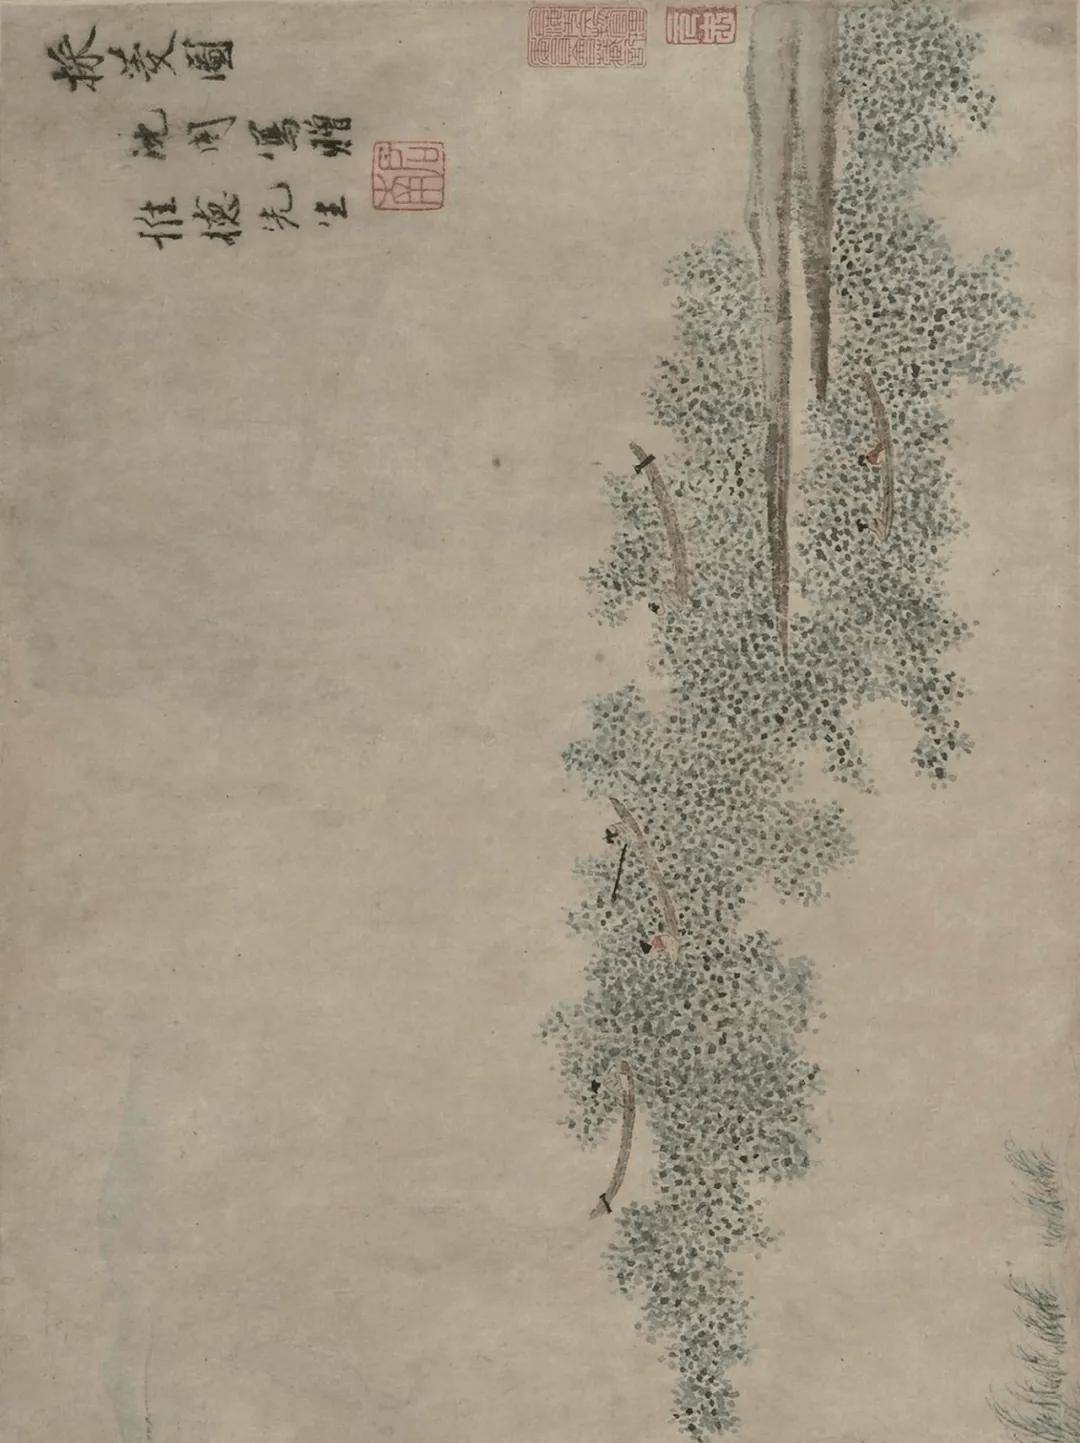 採菱圖
沈周寫贈
惟德先生
啟南